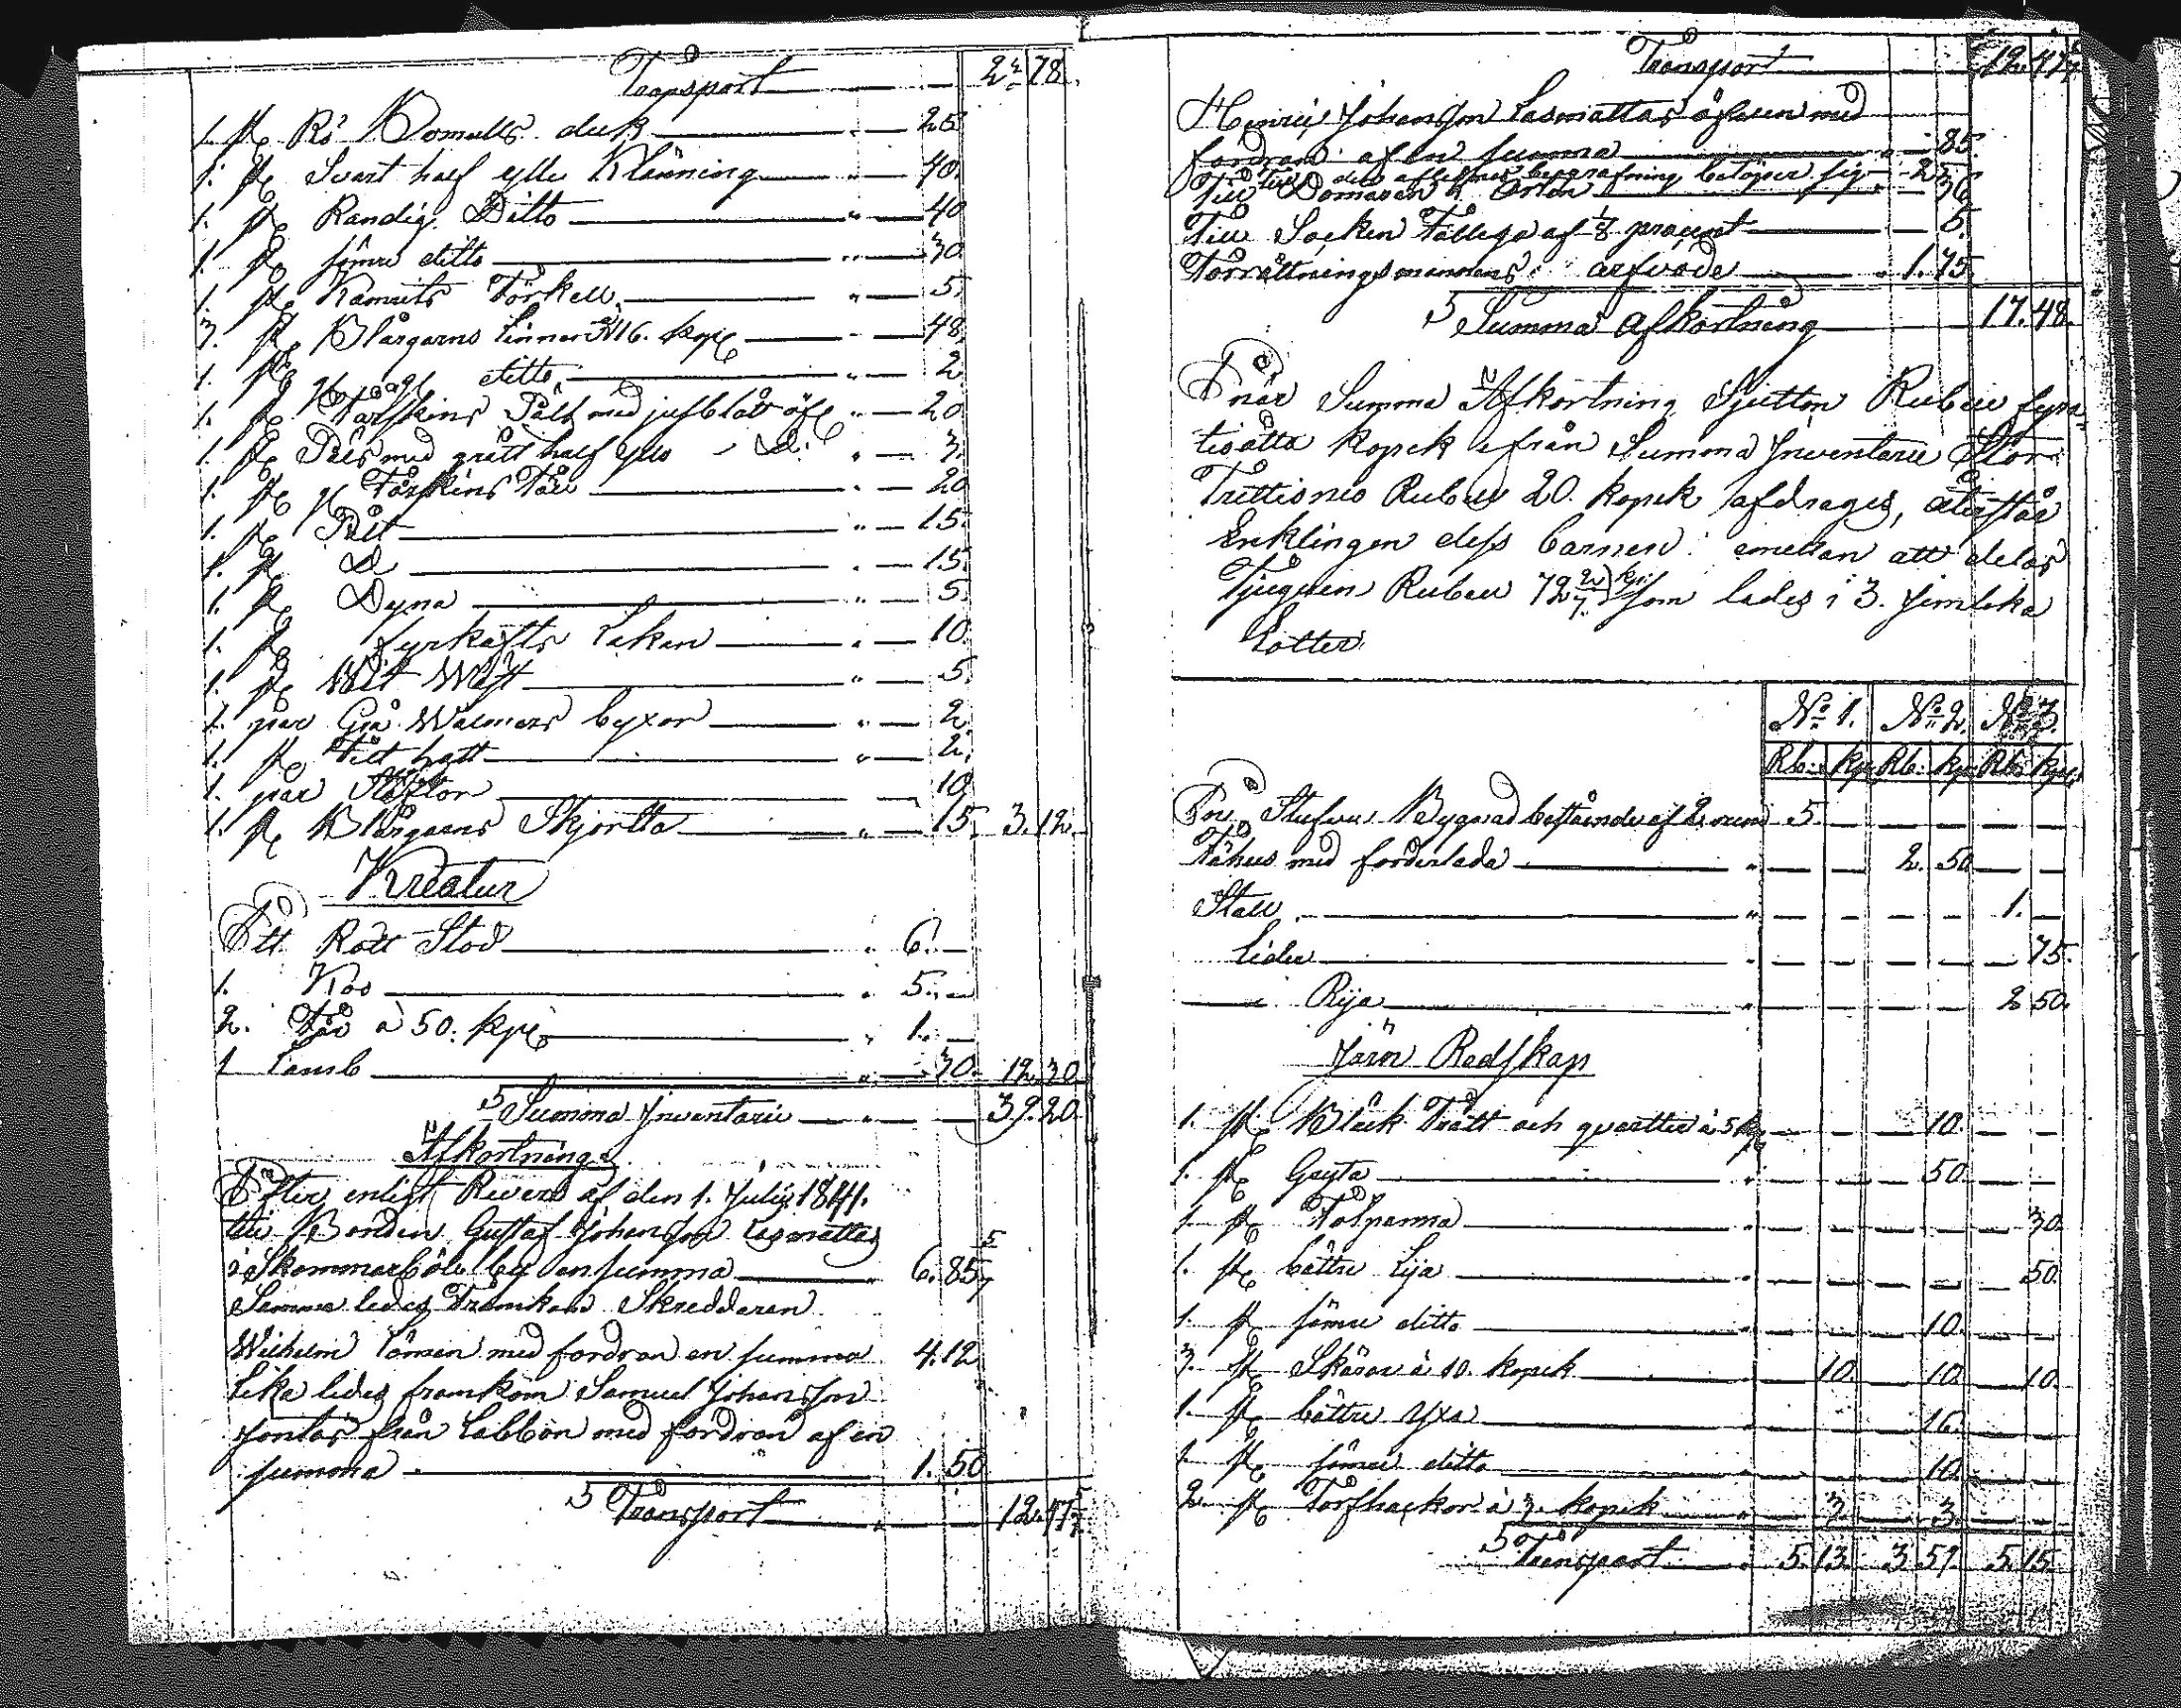 Transport — 78.
1. st. Rö Bomulls duk — 25
1. st. Svart half ylle Klänning — " — 40.
1. st. Randig Ditto — " — 40
1. st. sämre ditto — " — 30
1. st. Kamlits Förkell — " — 5.
3. st. Blårgarns Linnen à 16. kop — " — 48.
1. st. ditto — " — 2
1. st. Fårskins Päls med jufblått öf — " — 20
1. st. Päls med grått half ylle — D: " — 3.
1. st. Fårskins Fäll — " — 20
1. st. Pält — " — 15.
1. st. D — " — 15.
1. st. Dyna — " — 5.
1. st. fyrskafts Lakan — " — 10.
1. st. — " — 5.
1. par Grå Walmars byxor — " — 2
1. st. Filt hatt — " — 2.
1. par — 10
1. st. Blårgarns Skjorta — " — 15. 3.12.
Kreatur
Ett Rött Stod — " 6. —
1. Koo — " 5. —
2. Får à 50. kp — " 1. —
1 Lamb — " — 30. 12.30
S Summa Inventarie — " — 39.20
Afkortning
Efter enligt Revers af den 1. Julii 1841.
till Bonden Gustaf Johansson Lasmattas
i Skommarböle by en summa — 6.85 5/7
Samma ledes Framkom Skreddaren
Wilhelm Lönsen med fordran en summa 4.12
Lika ledes framkom Samuel Johansson
från Labbon med fordran af en
summa — 1.50
S Transport — " — 12.47 5/7
Transport — 12.47 5/7
Henric Johansson Lasmattas äfven med
fordran af en summa — " — 85.
Till den aflednes begrafning belöper sig — 2
Till Domaren — " — 36
Till Socken Fattiga af 1/8 procent — 5.
Förrättningsmannens arfvode — " 1.75.
S Summa Afkortning — 17.48.
När Summa Afkortning Sjutton Rubel fyra
tioåtta kopek ifrån Summa Inventarie Stor
Trettionio Rubel 20. kopek afdrages, återstår
Enklingen dess barnen emellan att delas
Tjuguen Rubel 72 kp: som lades i 3. jemlika
Lotter.
No 1. No 2 No 3.
Rb: kp. Rb: kp. Rb: kp.
En Stufvu Bygnad bestående af 2. rum 5. — — — — —
Fähus med foderlada — " — — 2. 50 — —
Stall — " — — — — 1. —
Lider — " — — — — — 75.
— Rija — " — — — — 2 50.
Järn Redskap
1. st. Bläck Tratt och qvarter à 5 kp — — — 10. — —
1. st. Gryta — " — — — 50. — —
1. st. Fotpanna — " — — — — — 30.
1. st. bättre Lija — " — — — — — 50.
1. st. sämre ditto — " — — — 10. — —
3. st. Skäror à 10. kopek — " — 10. — 10 — 10.
1. st. bättre yxa — " — — — 16. — —
1. st. sämre ditto — " — — — 10. — —
2. st. Torfhackor à 3. kopek — " — 3. — 3. — —
S Transport — " 5.13. 3 59. 5.15.